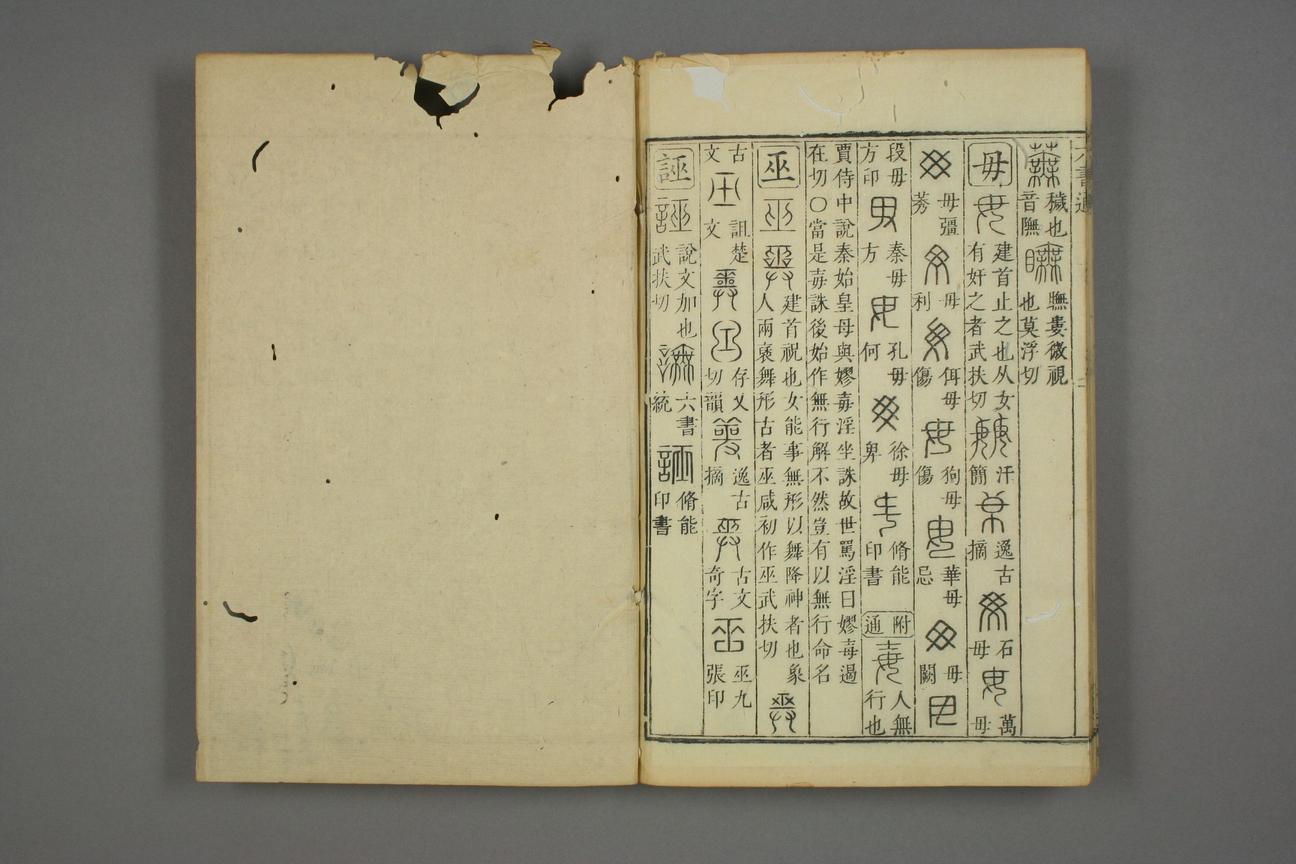 六書通
蕪 穢也音憮 瞴 瞴婁微視也莫浮切
毋 毋 建首止之也从女有奸之者武扶切 汗簡 逸古摘 石毋 萬毋
毋彊 毋利 佴毋傷 狗毋傷 華毋忌 毋闕
段毋方印 秦毋方 孔毋何 徐毋 脩能印書 附通 毐 人無行也
賈侍中說秦始皇母與嫪毐淫坐誅故世罵淫曰嫪毐遏在切〇當是毐誅後始作無行解不然豈有以無行命名
巫 巫 建首祝也女能事無形以舞降神者也象人兩褎舞形古者巫咸初作巫武扶切
古文 詛楚文 存乂切韻 逸古摘 古文奇字 巫九張印
誣 誣 說文加也武扶切 六書統 脩能印書